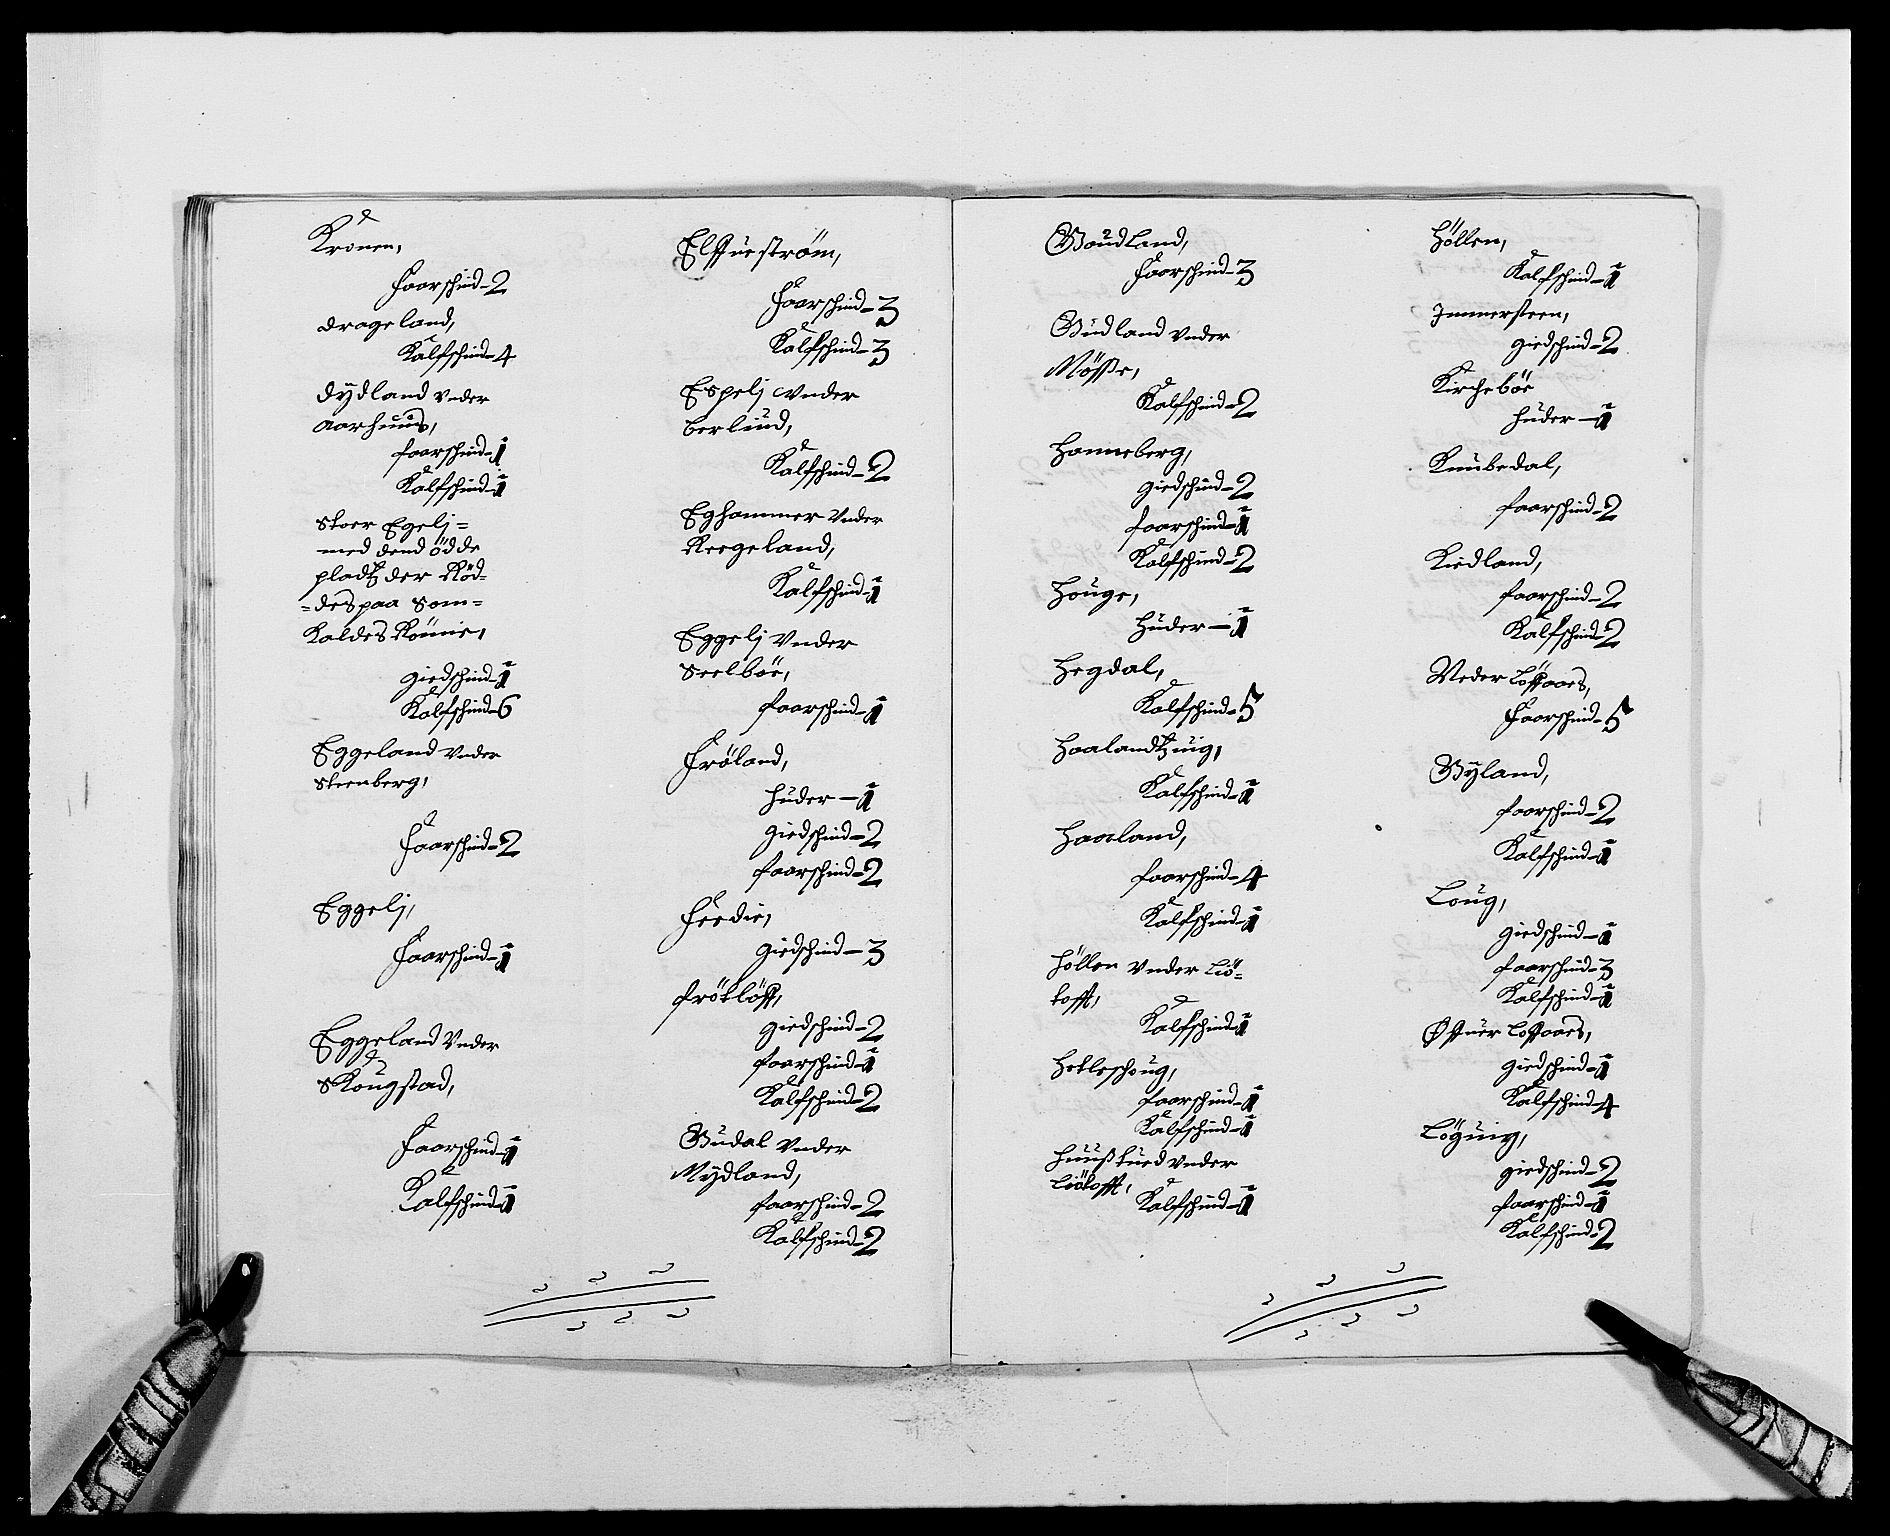 Kronen,
Faarschind-2
Drageland,
Kalfschind-4
Dÿdland Vnder
Aarhuus,
faarschind-1
Kalfschind-1
Stoer Egelj=
med dend ödde
pladtz der Röd=
=des paa Som=
Kaldes Rönie,
giedschind-1
Kalfschind-6
Eggeland Vnder
Steenberg,
Faarschind-2
Eggelj,
Faarschind-1
Eggeland Vnder
Skougstad,
Faarschind-1
Kalfschind-1
Elffueström,
Faarschind-3
Kalfschind-3
Espelj Vnder
Berliud,
Kalfschind-2
Eghammer Vnder
Reegeland,
Kalfschind-1
Eggelj Vnder
Seelböe,
faarschind-1
Fröland,
Huder-1
giedschind-2
faarschind-2
Feedie,
giedschind-3
frötlöff,
giedschind-2
faarschind-1
Kalfschind-2
Gudal Vnder
Mÿdland,
faarschind-2
Kalfschind-2
Goudland,
Faarschind-3
Gudland Vnder
Mösse,
Kalfschind-2
Hanneberg,
giedschind-2
faarschind-1
Kalfschind-2
Houge,
Huder-1
Hegdal,
Kalfschind-5
Haalandtzuig,
Kalfschind-1
Haaland,
faarschind-4
Kalfschind-1
Höllen Vnder Liö=
tofft,
Kalfschind-1
Hetleschoug,
faarschind-1
Kalfschind-1
Huußtued Vnder
Liötofft,
Kalfschind-1
Höllen,
Kalfschind-1
Immersteen,
giedschind-2
Kircheböe
Huder-1
Knubedal,
faarschind-2
Kiedland,
faarschind-2
Kalfschind-2
Neder Löffaaes,
Faarschind-5
Gÿland,
faarschind-2
Kalfschind-1
Loug,
giedschind-1
faarschind-3
Kalfschind-1
Øffuer Loffaaes,
giedschind-1
Kalfschind-4
Löguig,
giedschind-2
faarschind-1
Kalfschind-2